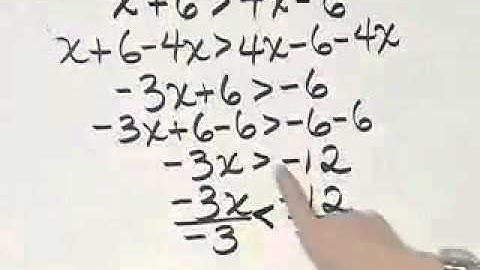 x+6>4x-6
x+6-4x>4x-6-4x
-3x+6>-6
-3x+6-6>-6-6
-3x>-12
-3x<-12
-3